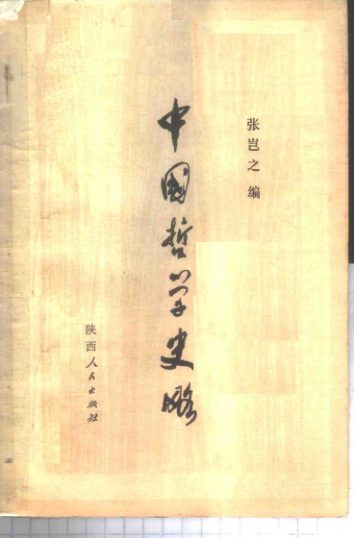 张岂之编
中國哲学史略
陕西人民出版社